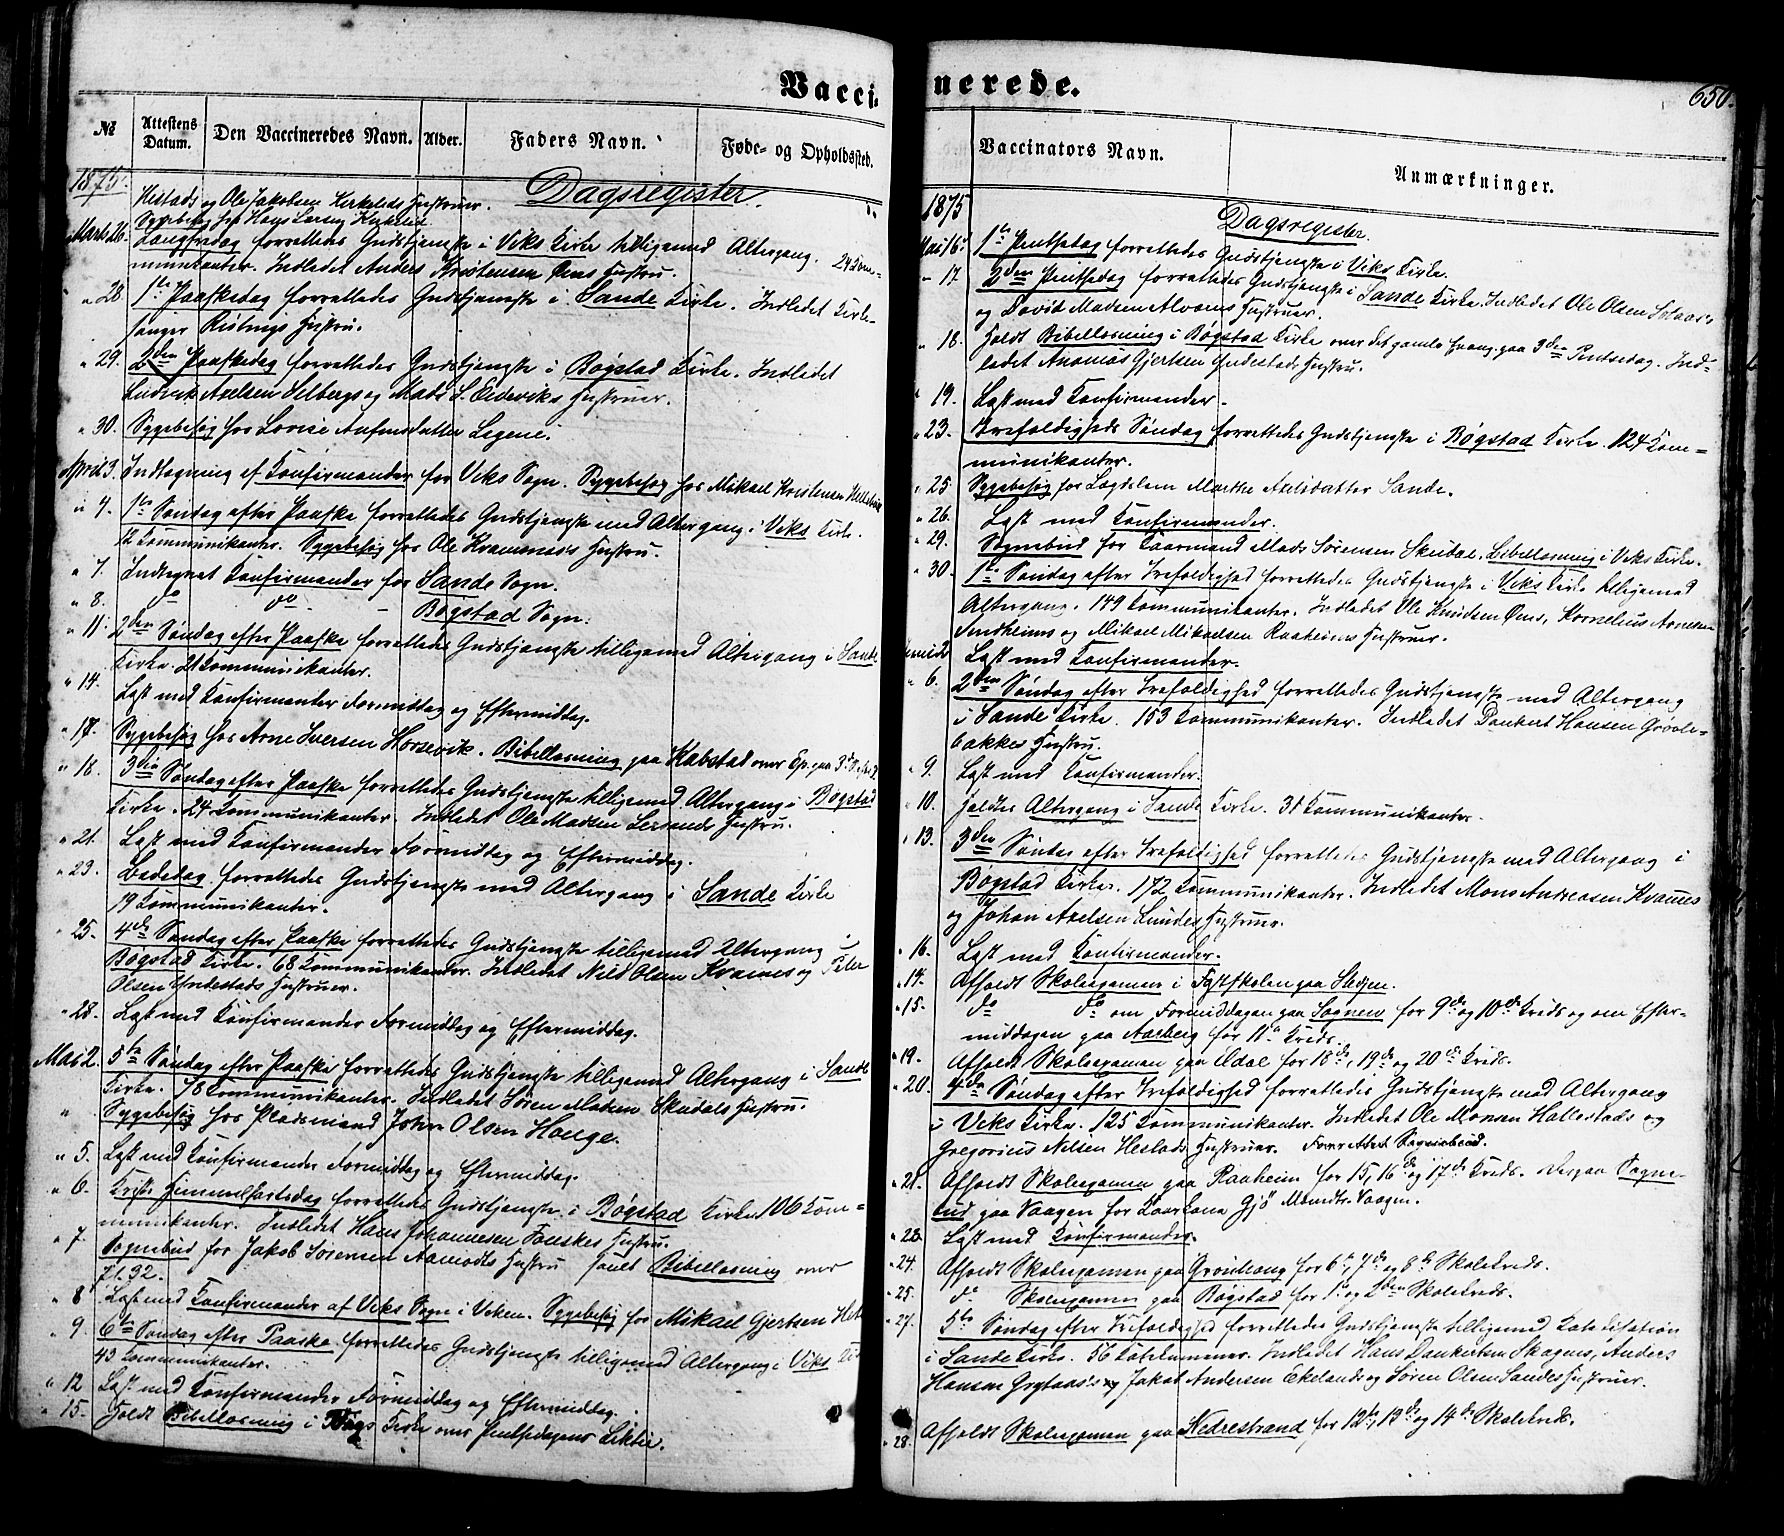 Vacci-
№
Attestens Datum.
Den Vaccineredes Navn.
Alder.
Faders Navn.
Føde- og Opholdssted.
1875.
Dagsregister.
Hestads og Ole Jakobsen Hustruer.
Sygebesøg hos Hans Larsen
Marts 26. Langfredag forrettedes Gudstjeneste i Viks Kirke tilligemed Altergang. 24 Kom-
munikanter. Indledet Anders Kristensen Øens Hustru.
" 28. 1ste Paaskedag forrettedes Gudstjeneste i Sande Kirke. Indledet Kirke-
sanger Hustru.
" 29. 2den Paaskedag forrettedes Gudstjeneste i Bøgstad Kirke. Indledet
Ludvik Axelsen Selbergs og Mads S. Eideviks Hustruer.
" 30. Sygebesøg hos Lovise
April 3. Indtagning af Konfirmander for Viks Sogn. Sygebesøg hos Mikael Kristensen
" 4. 1ste Søndag efter Paaske forrettedes Gudstjeneste med Altergang i Viks Kirke.
12 Kommunikanter. Sygebesøg hos Ole Hustru.
" 7. Indtegnet Konfirmander for Sande Sogn.
" 8. do do — Bøgstad Sogn.
" 11. 2den Søndag efter Paaske forrettedes Gudstjeneste tilligemed Altergang i Sande
Kirke. 21 Kommunikanter.
" 14. Læst med Konfirmander Formiddag og Eftermiddag.
" 17. Sygebesøg hos Arne Iversen Horsevik. Bibellæsning paa Kabstad over Ep. paa 3 S. e. P.
" 18. 3die Søndag efter Paaske forrettedes Gudstjeneste tilligemed Altergang i Bøgstad
Kirke. 24 Kommunikanter. Indledet Ole Madsen Hustru.
" 21. Læst med Konfirmander Formiddag og Eftermiddag.
" 23. Bededag forrettedes Gudstjeneste med Altergang i Sande Kirke
19 Kommunikanter.
" 25. 4de Søndag efter Paaske forrettedes Gudstjeneste tilligemed Altergang i
Bøgstad Kirke. 68 Kommunikanter. Indledet Nils Olsen Kvames og Peter
Olsen Yndestads Hustruer.
" 28. Læst med Konfirmander Formiddag og Eftermiddag.
Mai 2. 5te Søndag efter Paaske forrettedes Gudstjeneste tilligemed Altergang i Sande
Kirke. 78 Kommunikanter. Indledet Søren Madsen Skudals Hustru.
" Sygebesøg hos Pladsmand Johan Olsen Hauge.
" 5. Læst med Konfirmander Formiddag og Eftermiddag.
" 6. Kristi Himmelfartsdag forrettedes Gudstjeneste i Bøgstad Kirke 106 Kom-
munikanter. Indledet Hans Johannesen Fauskes Hustru.
" 7. Sognebud for Jakob Sørensen Aamodts Hustru samt Bibellæsning over
Ps. 32.
" 8. Læst med Konfirmander af Viks Sogn i Viken. Sygebesøg hos Mikael Gjertsen
" 9. 6te Søndag efter Paaske forrettedes Gudstjeneste tilligemed Altergang i Viks
43 Kommunikanter.
" 12 Læst med Konfirmander Formiddag og Eftermiddag.
" 15. Holdt Bibellæsning i Kirke over Pintsedagens Lektie.
nerede.
650.
Vaccinators Navn.
Anmærkninger.
1875
Dagsregister.
Mai 16. 1ste Pintsedag forrettedes Gudstjeneste i Viks Kirke.
" 17. 2den Pintsedag forrettedes Gudstjeneste i Sande Kirke. Indledet Ole Olsen
og David Madsen Hustruer.
" 18. Holdt Bibellæsning i Bøgstad Kirke over det gamle Evang. paa 3den Pintsedag. Ind-
ledet Andreas Gjertsen Yndestads Hustru.
" 19. Læst med Konfirmander.
" 23. Trefoldigheds Søndag forrettedes Gudstjeneste i Bøgstad Kirke. 124 Kom-
munikanter.
" 25 Sygebesøg hos Lægdslem Marthe Axelsdatter Sande.
" 26. Læst med Konfirmander.
" 29. Sognebud for Kaarmand Mads Sørensen Skudal. Bibellæsning i Viks Kirke.
" 30. 1ste Søndag efter Trefoldighed forrettedes Gudstjeneste i Viks Kirke tilligemed
Altergang. 149 Kommunikanter. Indledet Ole Knudsen Øens, Kornelius Arnesen
Indheims og Mikael Mikaelsen Raaheims Hustruer.
Juni 2 Læst med Konfirmander.
" 6. 2den Søndag efter Trefoldighed forrettedes Gudstjeneste med Altergang
i Sande Kirke. 153 Kommunikanter. Indledet Dankert Hansen
bakkes Hustru.
" 9. Læst med Konfirmander.
" 10. Holdtes Altergang i Sande Kirke. 31 Kommunikanter.
" 13. 3den Søndag efter Trefoldighed forrettedes Gudstjeneste med Altergang i
Bøgstad Kirke. 172 Kommunikanter. Indledet Mons Andreasen Kvames
og Johan Axelsen Lundes Hustruer.
" 16. Læst med Konfirmander.
" 14. Afholdt Skoleexamen i Fastskolen paa
" 15. do do om Formiddagen paa Sognem for 9de og 10de Kreds og om Efter-
middagen paa Aarberg for 11te Kreds.
" 19. Afholdt Skoleexamen paa Eldal for 18de, 19de og 20de Kreds.
" 20. 4de Søndag efter Trefoldighed forrettedes Gudstjeneste med Altergang
i Viks Kirke. 125 Kommunikanter. Indledet Ole Monsen Hallestads og
Gregorius Nilsen Hestads Hustruer. Forrettet Sognebud.
" 21. Afholdt Skoleexamen paa Raaheim for 15, 16de og 17de Kreds. Derpaa Sogne-
bud paa Vaagen for
" 23. Læst med Konfirmander.
" 24. Afholdt Skoleexamen paa Grønhaug for 6te, 7de og 8de Skolekreds.
" 25. do Skoleexamen paa Bøgstad for 1ste og 2den Skolekreds.
" 27. 5te Søndag efter Trefoldighed forrettedes Gudstjeneste tilligemed Katekisation
i Sande Kirke. 56 Katekumener. Indledet Hans Dankertsen Skogens, Anders
Hansen og Jakob Andersen Ekelands og Søren Olsen Sandes Hustruer.
" 28. Afholdt Skoleexamen paa Nedrestrand for 12te, 13de og 14de Skolekreds.